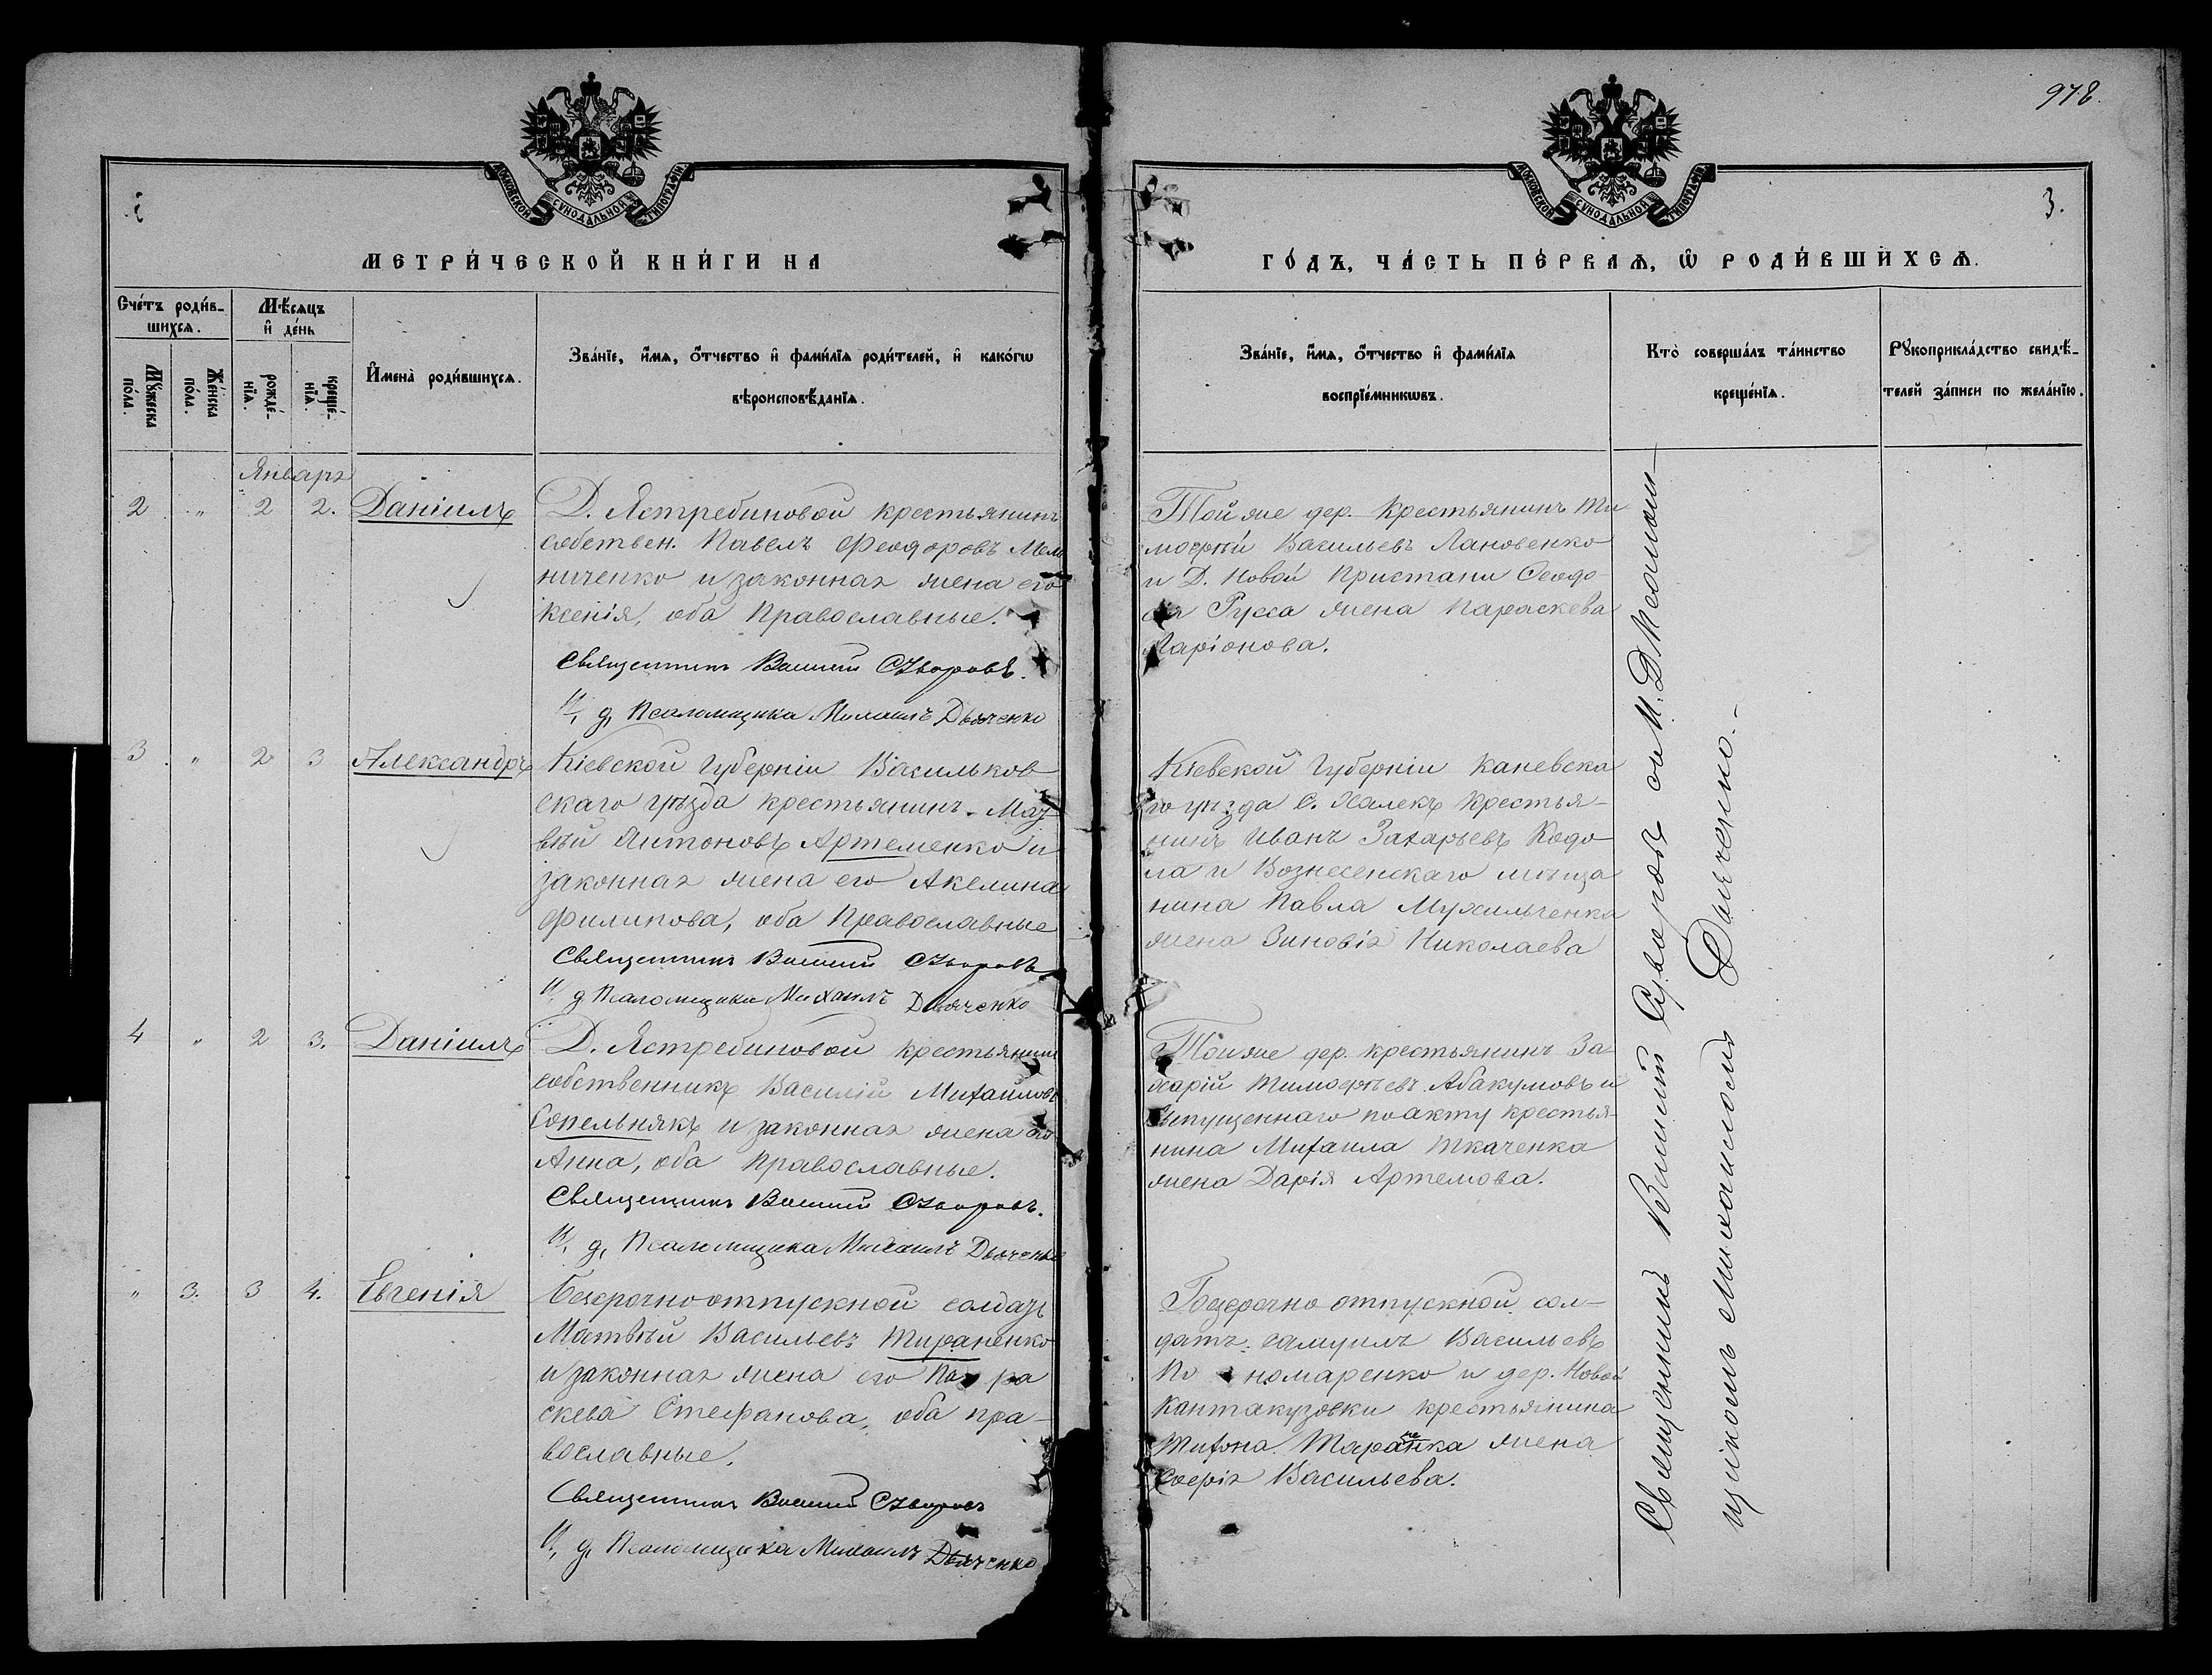 978.
3.
МОСКОВСКОЙ СѴНОДАЛЬНОЙ ТИПОГРАФІИ
МОСКОВСКОЙ СѴНОДАЛЬНОЙ ТИПОГРАФІИ
МЕТРИ́ЧЕСКОЙ КНИ́ГИ НА
ГО́ДЪ, ЧА́СТЬ ПЕ́РВАѦ, Ѡ҆ РОДИ́ВШИХСѦ.
Сче́тъ роди́в-
шихсѧ.
Мꙋ́жеска
по́ла.
Же́нска
по́ла.
Мѣ́сѧцъ
и҆ де́нь
рожде́-
нїѧ.
креще́-
нїѧ.
И҆мена̀ роди́вшихсѧ.
Зва́нїе, и҆́мѧ, ѻ҆́тчество и҆ фами́лїѧ роди́телей, и҆ како́гѡ
вѣроисповѣ́данїѧ.
Зва́нїе, и҆́мѧ, ѻ҆́тчество и҆ фами́лїѧ
воспрїе́мникѡвъ.
Кто̀ соверша́лъ та́инство
креще́нїѧ.
Рꙋкоприкла́дство свидѣ́-
телей за́писи по жела́нїю.
Январь
2 " 2 2. Даніилъ
Д. Ястребиновой крестьянинъ
собствен. Павелъ Феодоровъ Мель
ниченко и законная жена его
Ксенія, оба Православные.
Священникъ Василій Суворовъ.
И. д. Псаломщика Михаилъ Дьяченко
Той же дер. крестьянинъ Ти
мофѣй Васильевъ Лановенко
и Д. Новой Пристани Феодо
сія Русса жена Параскева
Ларіонова.
3 " 2 3 Александръ
Кіевской Губерніи Васильков
скаго уѣзда крестьянинъ Мат
вѣй Антоновъ Артеменко и
законная жена его Акелина
Филипова, оба Православные
Священникъ Василій Суворовъ
И. д. Псаломщика Михаилъ Дьяченко
Кіевской Губерніи Каневска
го уѣзда С. крестья-
нинъ Иванъ Захарьевъ
и Вознесенскаго мѣща
нина Павла
жена Зиновія Николаева
4 " 2 3. Даніилъ
Д. Ястребиновой крестьянинъ
собственникъ Василій Михайловъ
Сопельнякъ и законная жена его
Анна, оба Православные.
Священникъ Василій Суворовъ.
И. д. Псаломщика Михаилъ Дьяченко
Той же дер. крестьянинъ За
харій Тимофѣевъ Абакумовъ и
выпущеннаго по акту крестья-
нина Михаила Ткаченка
жена Дарія Артемова.
" 3. 3 4. Евгенія
Безсрочноотпускной солдатъ
Матвѣй Васильевъ Тираненко
и законная жена его Па ра
скева Стефанова, оба пра-
вославные.
Священникъ Василій Суворовъ
И. д. Псаломщика Михаилъ Дьяченко
Безсрочно отпускной сол-
датъ Самуилъ Васильевъ
По номаренко и дер. Новой
Кантакузовки крестьянина
Тихона Таранка жена
Софія Васильева.
Священникъ Василій Суворовъ съ И. Д. Псаломщикомъ Михаиломъ Дьяченко.